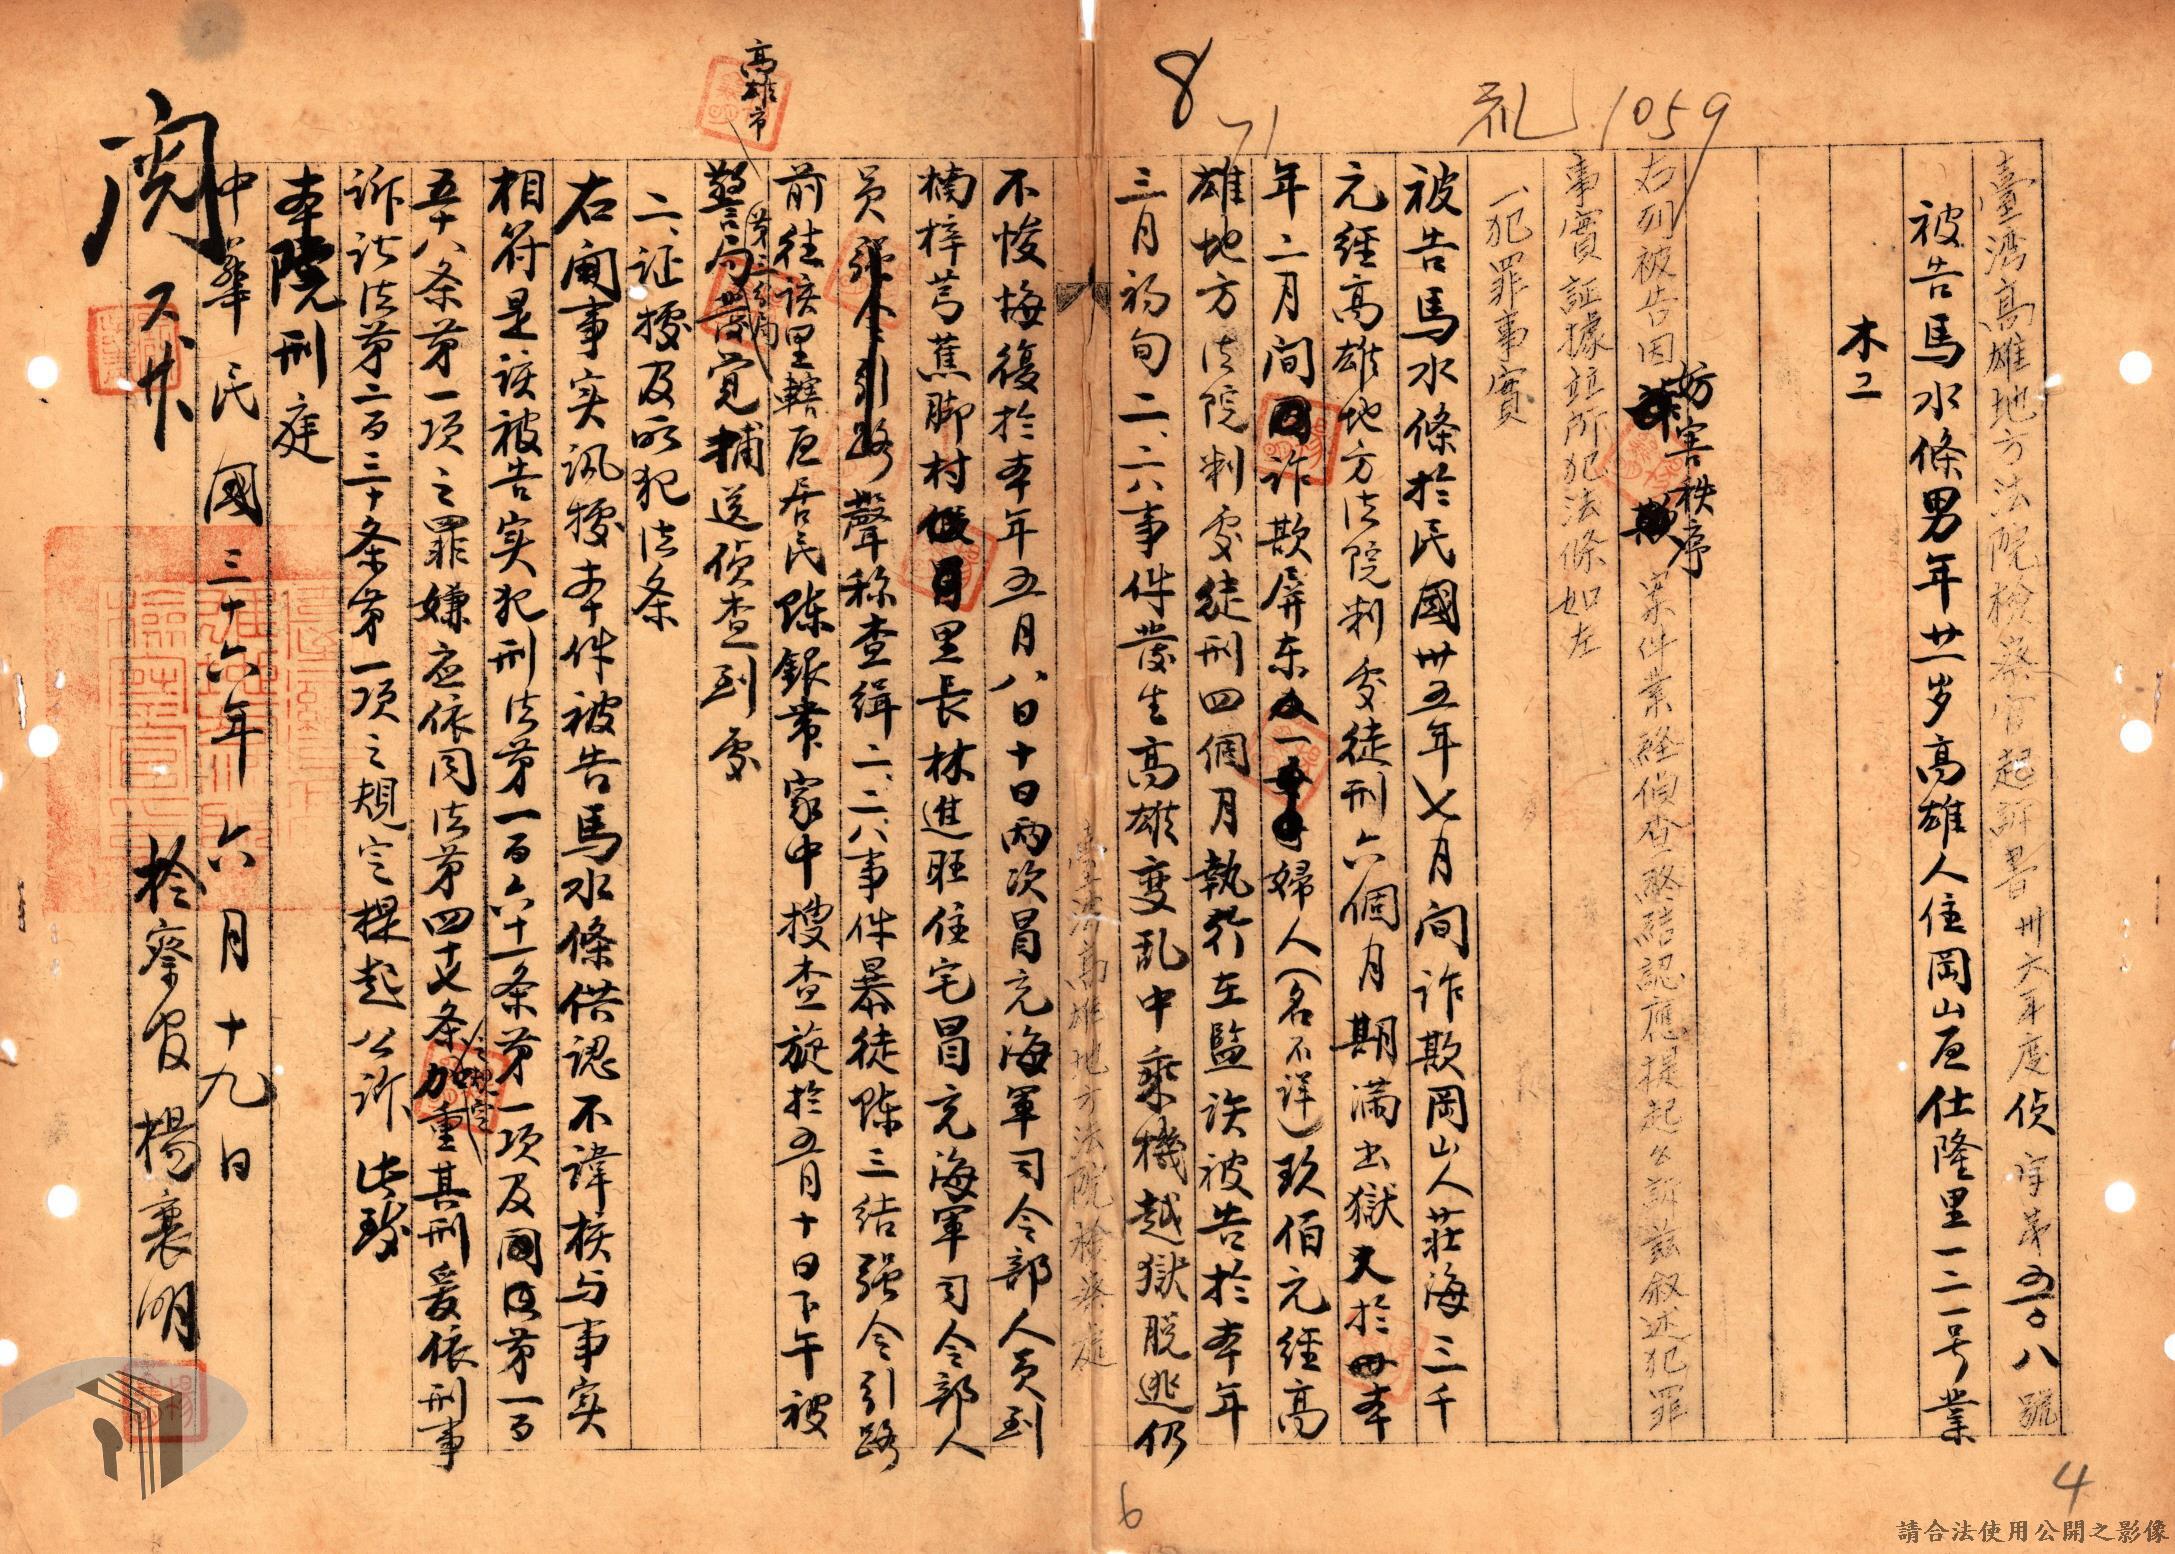 8
71
乱 1059
臺灣高雄地方法院檢察官起訴書卅六年度偵字第五〇八號
被告馬水條男年廿一岁高雄人住岡山区仕隆里一二一号業
木工
右列被告因妨害秩序案件業経偵查終結認應提起公訴茲叙述犯罪
事實証據並所犯法條如左
一、犯罪事實
被告馬水條於民國卅五年七月间诈欺岡山人莊海三千
元經高雄地方法院判处徒刑六個月期满出獄又於本
年二月间诈欺屏东一婦人(名不詳)玖伯元經高
雄地方法院判处徒刑四個月執行在監该被告於本年
三月初旬二、六事件發生高雄变乱中乘機越獄脱逃仍
臺灣高雄地方法院檢察處
不悛悔復於本年五月八日十日两次冒充海軍司令部人员到
楠梓芎蕉脚村里長林進旺住宅冒充海軍司令部人
员聲称查缉二、二八事件暴徒陈三结强令引路
前往该里轄区居民陈銀常家中搜查旋於五月十日下午被
高雄市
警局第三分局發覚捕送侦查到处
二、证據及所犯法条
右開事实讯據本件被告馬水條供認不諱核与事实
相符是该被告实犯刑法第一百六十一条第一項及同法第一百
五十八条第一項之罪嫌应依同法第四十七条之規定加重其刑爰依刑事
訴訟法第二百三十条第一項之規定提起公訴 此致
本院刑庭
中華民國三十六年六月十九日
檢察官 楊襄明
閱
6
4
請合法使用公開之影像